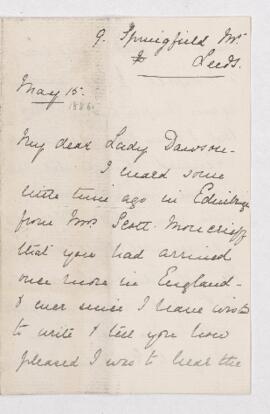 9. Springfield Mt
Leeds.
May 15.
1886.
My dear Lady Dawson -
I heard some
little time ago in Edinburgh
from Mrs Scott-Moncrieff
that you had arrived
once more in England -
& ever since I have
to write & tell you how
pleased I was to hear the